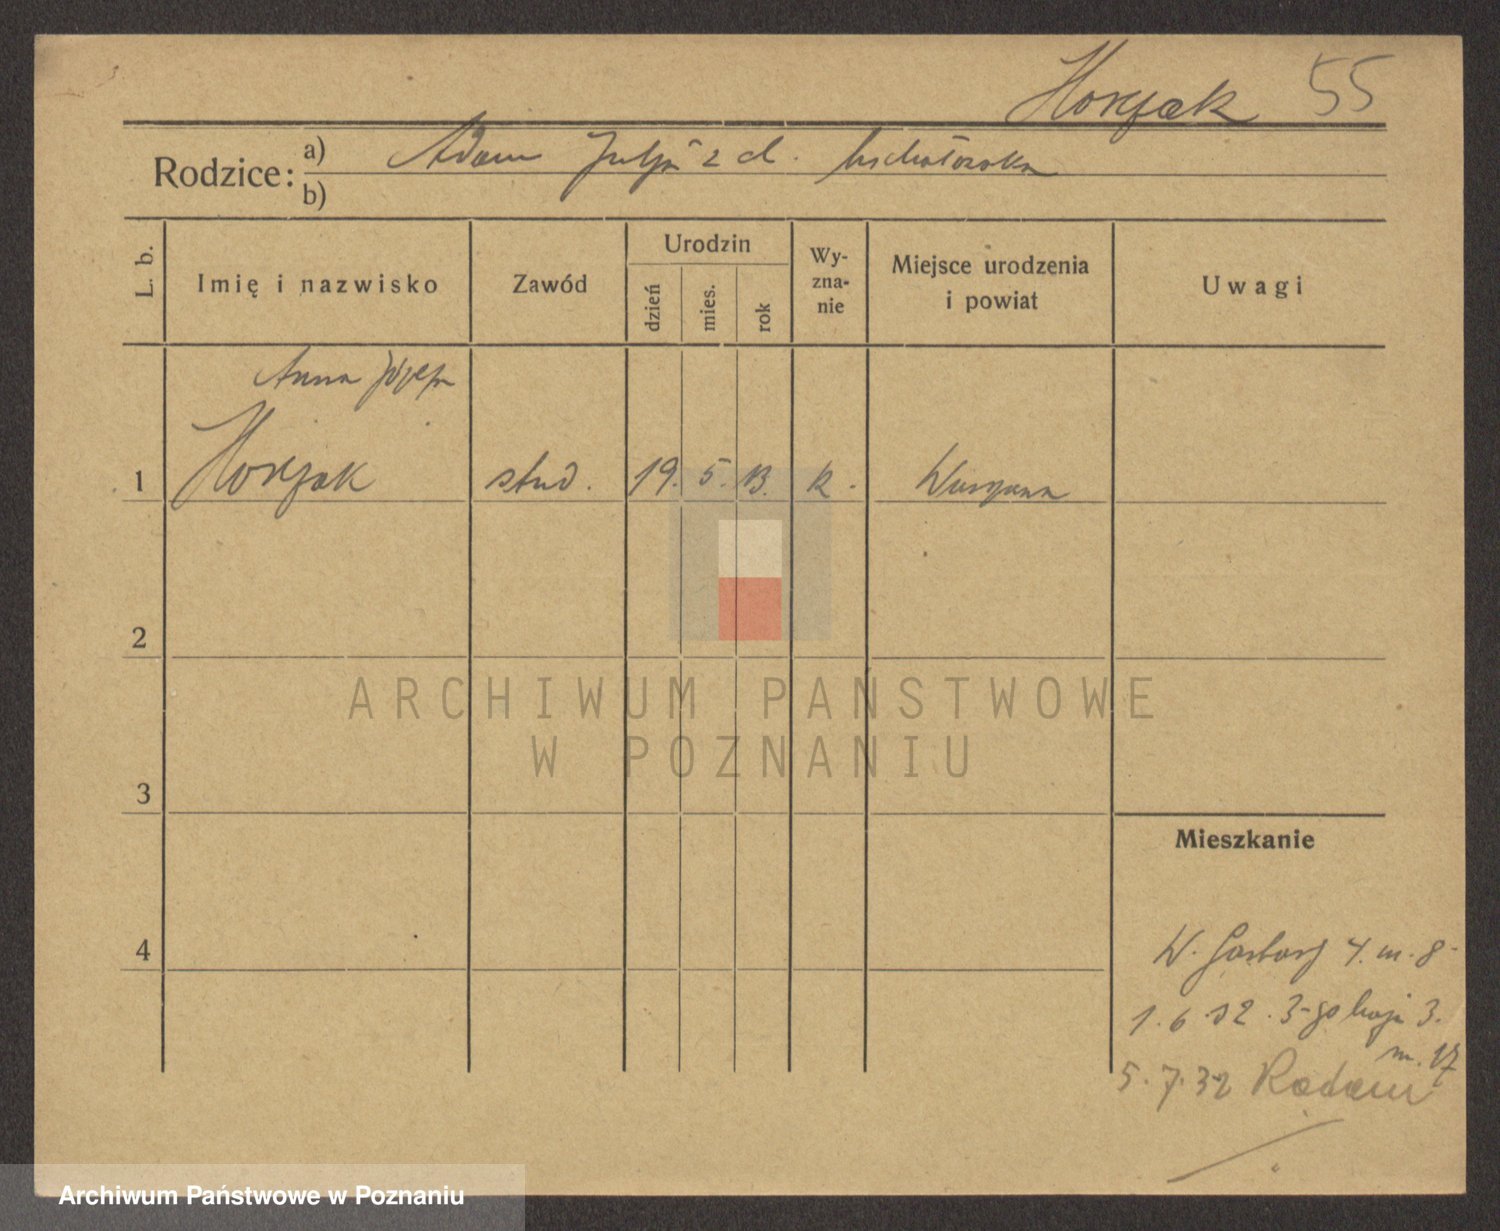 Horyak 55
Rodzice:
a) Adam Julja z d.
b)
L. b.
Imię i nazwisko
Zawód
Urodzin
dzień
mies.
rok
Wy-
zna-
nie
Miejsce urodzenia
i powiat
Uwagi
Anna Józefa
1 Horyak stud. 19. 5. 13. k.
2
3
4
Mieszkanie
W. Garbary 4. m. 8
1. 6. 32. 3-go Maja 3.
m. 17
5. 7. 32 Radom
ARCHIWUM PAŃSTWOWE
W POZNANIU
Archiwum Państwowe w Poznaniu